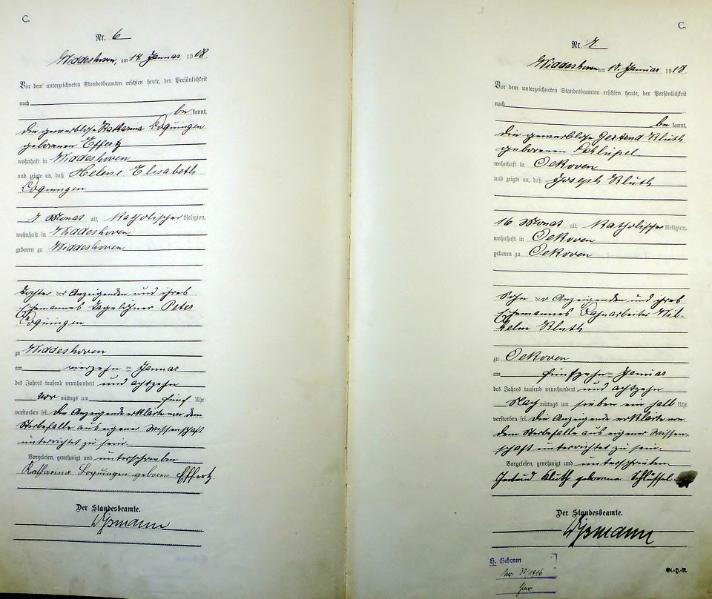 C.
Nr. 6
Widdeshoven, am 14. Januar 1918
Vor dem unterzeichneten Standesbeamten erschien heute, der Persönlichkeit
nach
be kannt,
die gewerblose Katharina
geborenen Effertz
wohnhaft in Widdeshoven
und zeigte an, daß Helene Elisabeth
Monat alt, katholischer Religion,
wohnhaft in Widdeshoven
geboren zu Widdeshoven
Tochter der Anzeigenden und ihres
Ehemannes Tagelöhner Peter
zu Widdeshoven
am vierzehn Januar
des Jahres tausend neunhundert und achtzehn
vor mittags um fünf Uhr
verstorben sei. Die Anzeigende erklärte von dem
Sterbefalle aus eigener Wissenschaft
unterrichtet zu sein.
Vorgelesen, genehmigt und unterschrieben
Katharina geborene Effertz
Der Standesbeamte.
C.
Nr. 7
Widdeshoven am Januar 1918
Vor dem unterzeichneten Standesbeamten erschien heute, der Persönlichkeit
nach
be kannt,
die gewerblose Gertrud Kluth
geborenen Schlüssel
wohnhaft in Oekoven
und zeigte an, daß Joseph Kluth
16 Monat alt, katholischer Religion,
wohnhaft in Oekoven
geboren zu Oekoven
Sohn der Anzeigenden und ihres
Ehemannes Bahnarbeiter Wil-
helm Kluth
zu Oekoven
am fünfzehn Januar
des Jahres tausend neunhundert und achtzehn
Nach mittags um sieben ein halb Uhr
verstorben sei. Die Anzeigende erklärte von
dem Sterbefalle aus eigener Wissen-
schaft unterrichtet zu sein.
Vorgelesen, genehmigt und unterschrieben
Gertrud Kluth geborene Schlüssel
Der Standesbeamte.
H. Geboren